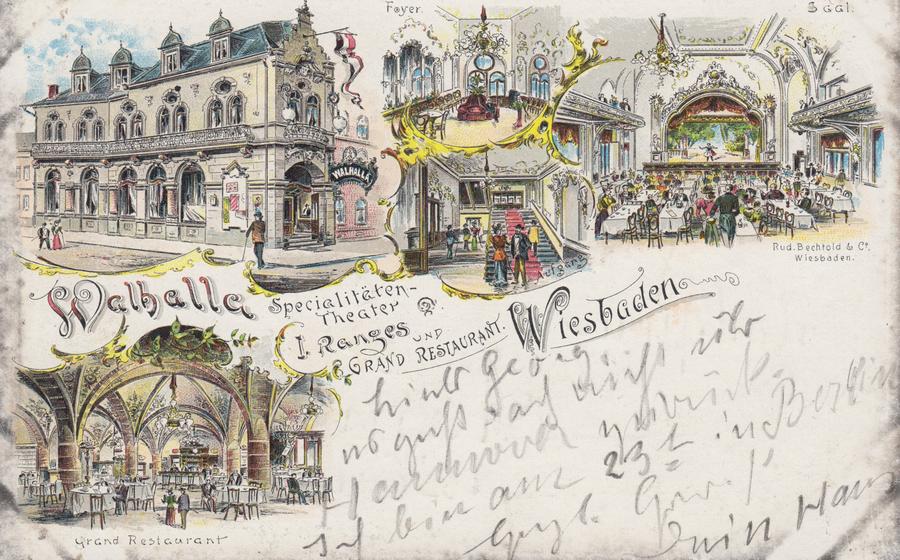 Foyer.
Saal.
WALHALLA
Aufgang
Rud. Bechtold & Co.
Wiesbaden.
Walhalla
Specialitäten-
Theater
I. Ranges
UND
GRAND RESTAURANT.
Wiesbaden
Grand Restaurant
Georg nicht
Hannover zurück.
Ich bin am 23t in Berlin
Dein Hans